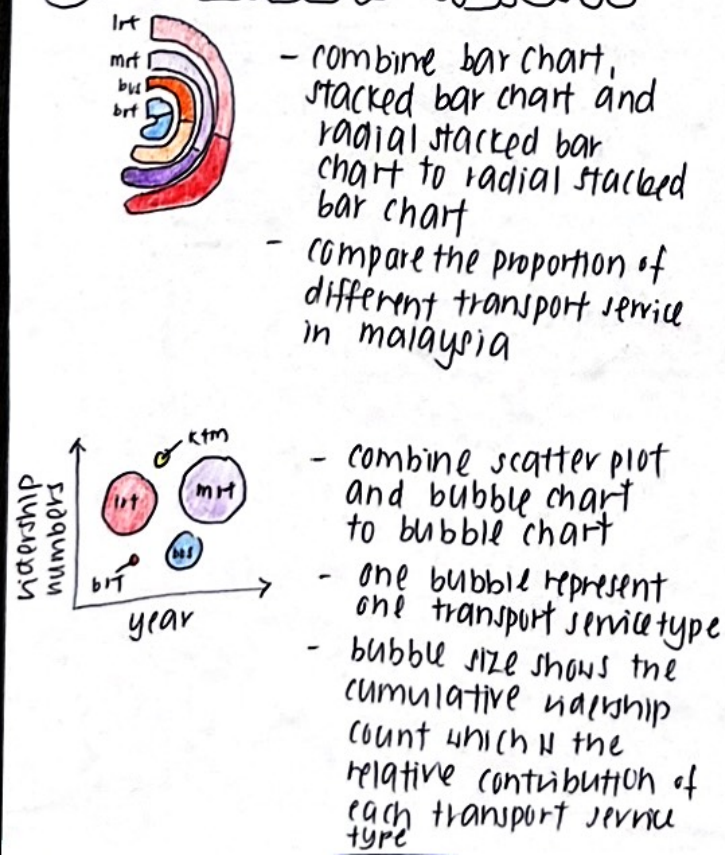 lrt
mrt
bus
brt
- combine bar chart,
stacked bar chart and
radial stacked bar
chart to radial stacked
bar chart
- compare the proportion of
different transport service
in malaysia
ktm
lrt
mrt
bus
brt
ridership
numbers
year
- combine scatter plot
and bubble chart
to bubble chart
- one bubble represent
one transport service type
- bubble size shows the
cumulative ridership
count which is the
relative contribution of
each transport service
type